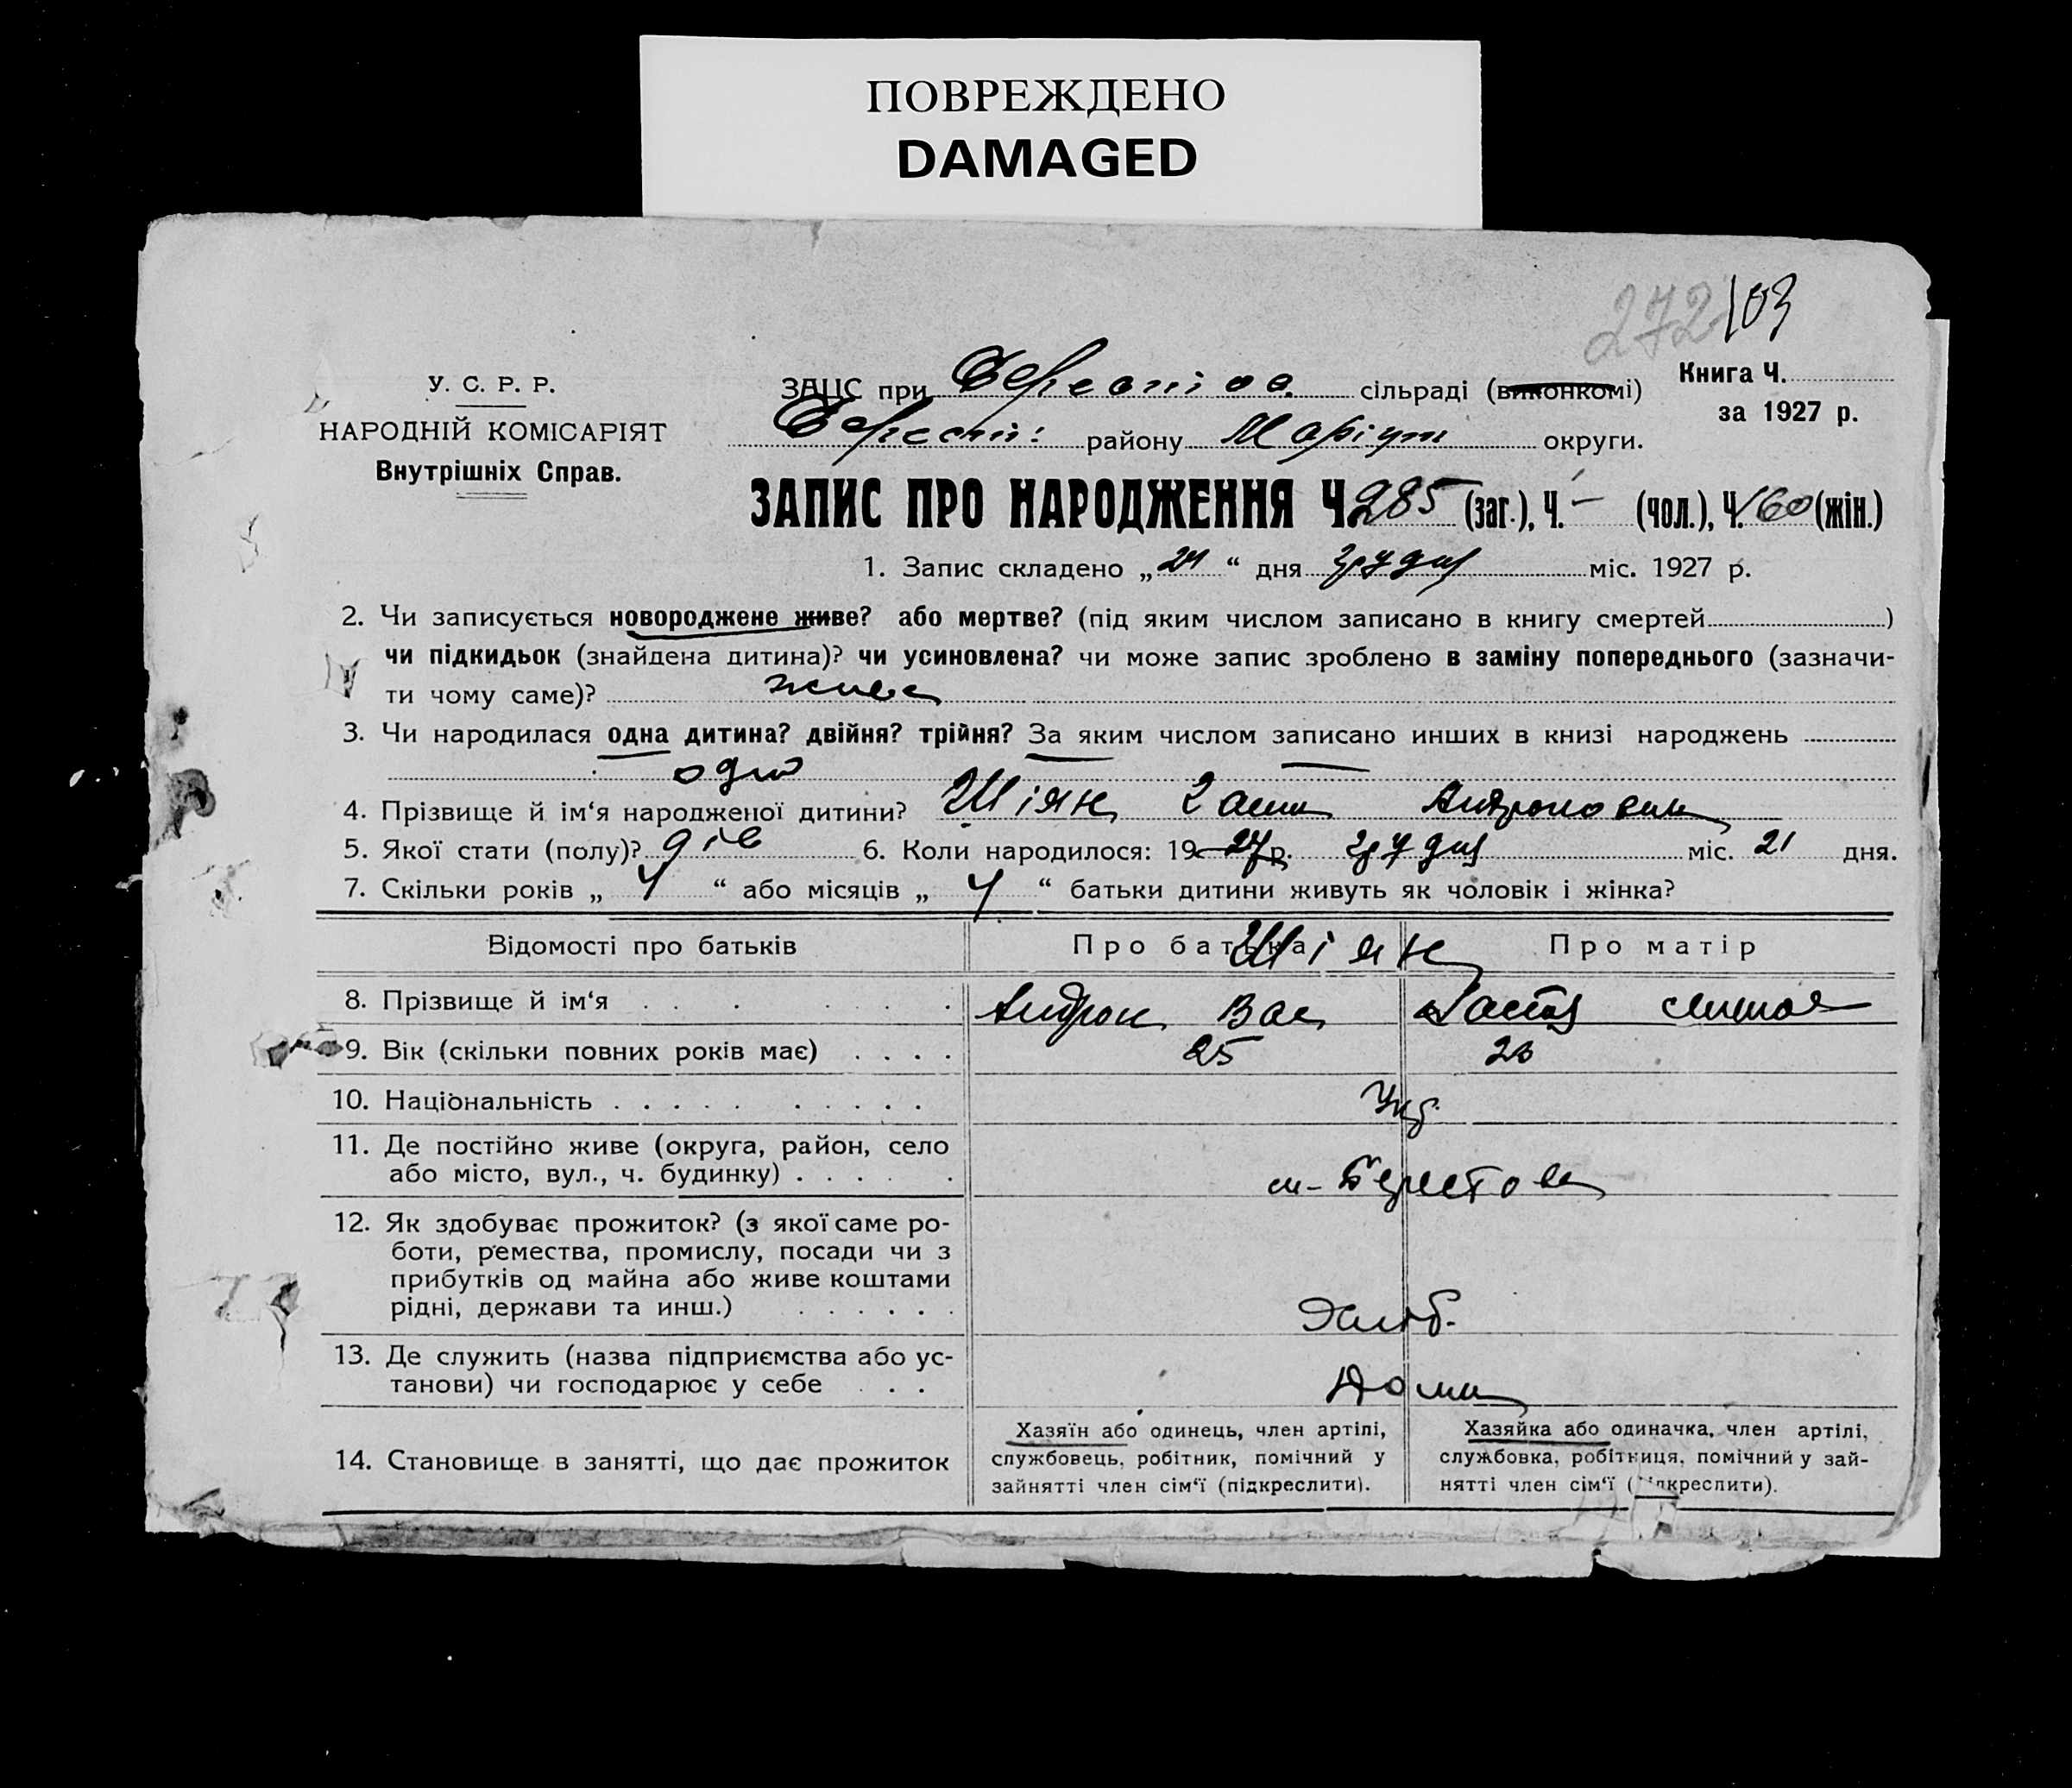 ПОВРЕЖДЕНО
DAMAGED
272 103
У. С. Р. Р.
НАРОДНІЙ КОМІСАРІЯТ
Внутрішніх Справ.
Книга Ч.
за 1927 р.
ЗАЦС при Берестов. сільраді (виконкомі)
Берест: району Маріуп округи.
ЗАПИС ПРО НАРОДЖЕННЯ Ч. 285 (заг.), Ч. – (чол.), Ч. 160 (жін.)
1. Запис складено „ “ дня грудня міс. 1927 р.
2. Чи записується новороджене живе? або мертве? (під яким числом записано в книгу смертей )
чи підкидьок (знайдена дитина)? чи усиновлена? чи може запис зроблено в заміну попереднього (зазначи-
ти чому саме)? живе
3. Чи народилася одна дитина? двійня? трійня? За яким числом записано инших в книзі народжень
одна
4. Прізвище й ім‘я народженої дитини? Шіян Андроновна
5. Якої стати (полу)? дів 6. Коли народилося: 1927 р. грудня міс. 21 дня.
7. Скільки років „ 4 “ або місяців „ 4 “ батьки дитини живуть як чоловік і жінка?
Відомості про батьків Про батька Про матір
Шіян
8. Прізвище й ім‘я Андрон Вас
9. Вік (скільки повних років має) 25 23
10. Національність Укр.
11. Де постійно живе (округа, район, село
або місто, вул., ч. будинку) Берестове
12. Як здобуває прожиток? (з якої саме ро-
боти, ремества, промислу, посади чи з
прибутків од майна або живе коштами
рідні, держави та инш.) Хліб.
13. Де служить (назва підприємства або ус-
танови) чи господарює у себе Дома
14. Становище в занятті, що дає прожиток
Хазяїн або одинець, член артілі,
службовець, робітник, помічний у
зайнятті член сім‘ї (підкреслити).
Хазяйка або одиначка, член артілі,
службовка, робітниця, помічний у зай-
нятті член сім‘ї (підкреслити).